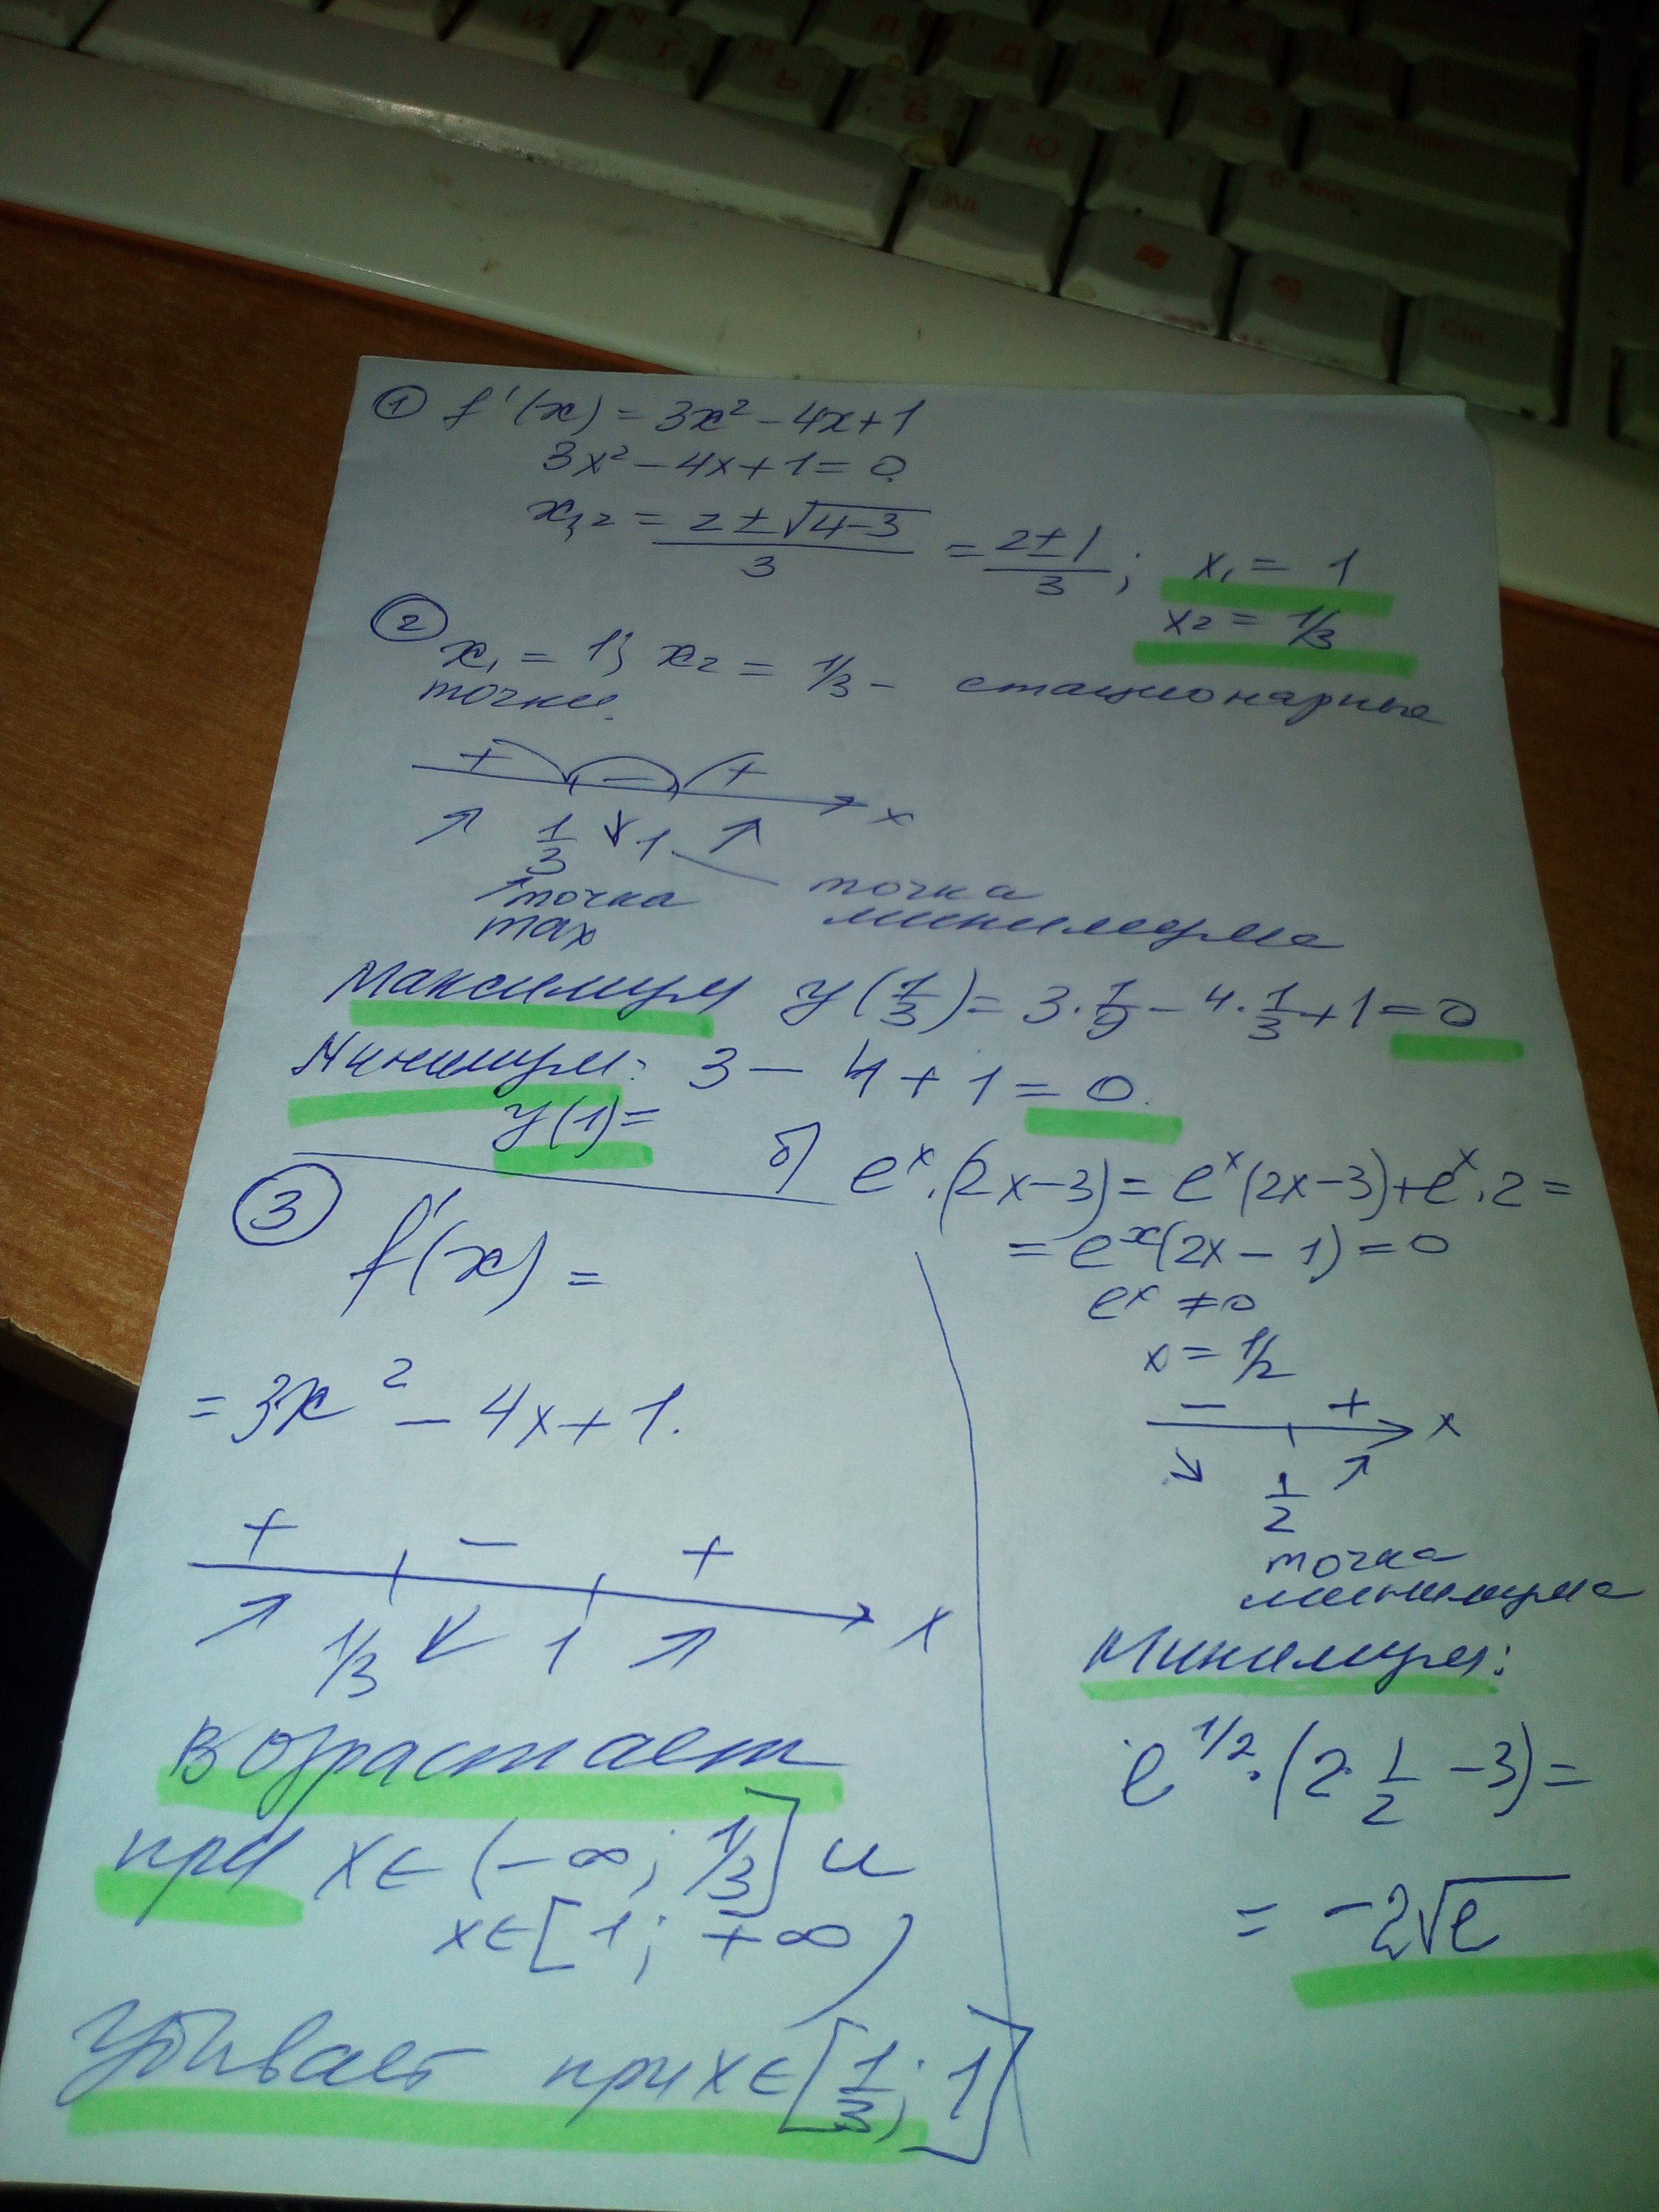 ① f'(x) = 3x² - 4x + 1
3x² - 4x + 1 = 0
x₁,₂ = (2 ± √(4-3))/3 = (2 ± 1)/3 ; x₁ = 1
x₂ = 1/3
② x₁ = 1; x₂ = 1/3 - стационарные
точки.
+ - + x
1/3 1
точка max
точка минимума
Максимум y(1/3) = 3·1/9 - 4·1/3 + 1 = 0
Минимум: 3 - 4 + 1 = 0.
y(1) =
③ f'(x) =
= 3x² - 4x + 1.
+ - +
1/3 1 x
Возрастает
при x∈(-∞; 1/3] и
x∈[1; +∞)
Убивает при x∈[1/3; 1]
б) eˣ·(2x-3) = eˣ(2x-3) + eˣ·2 =
= eˣ(2x - 1) = 0
eˣ ≠ 0
x = 1/2
- + x
1/2
точка
минимума
Минимум:
e^1/2·(2·1/2 - 3) =
= -2√e